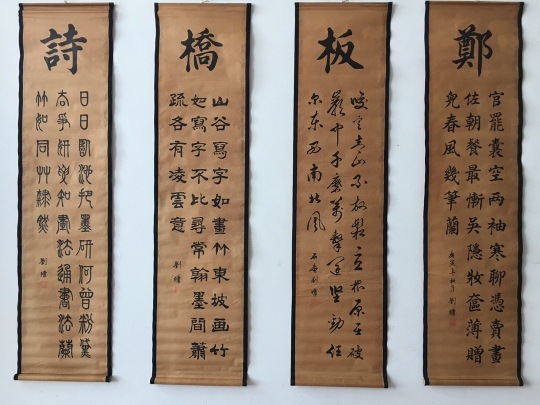 鄭
官罷囊空两袖寒聊憑賣畫
佐朝餐最慚吳隱妝奩薄贈
兒春風幾筆蘭
劉墉
板
咬定青山不放鬆立根原在破
巖中千磨萬擊還坚勁任
尔东西南北風
石庵劉墉
橋
山谷寫字如畫竹東坡画竹
如寫字不比尋常翰墨間蕭
疏各有凌雲意
劉墉
詩
日日臨池把墨研何曾粉黛
去爭妍要知畫法通書法蘭
竹如同艸隸然
劉墉